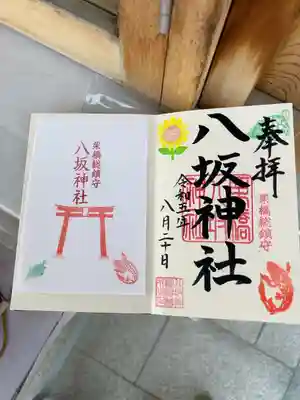 栗橋総鎮守
八坂神社
奉拝
栗橋総鎮守
八坂神社
令和五年
八月二十日